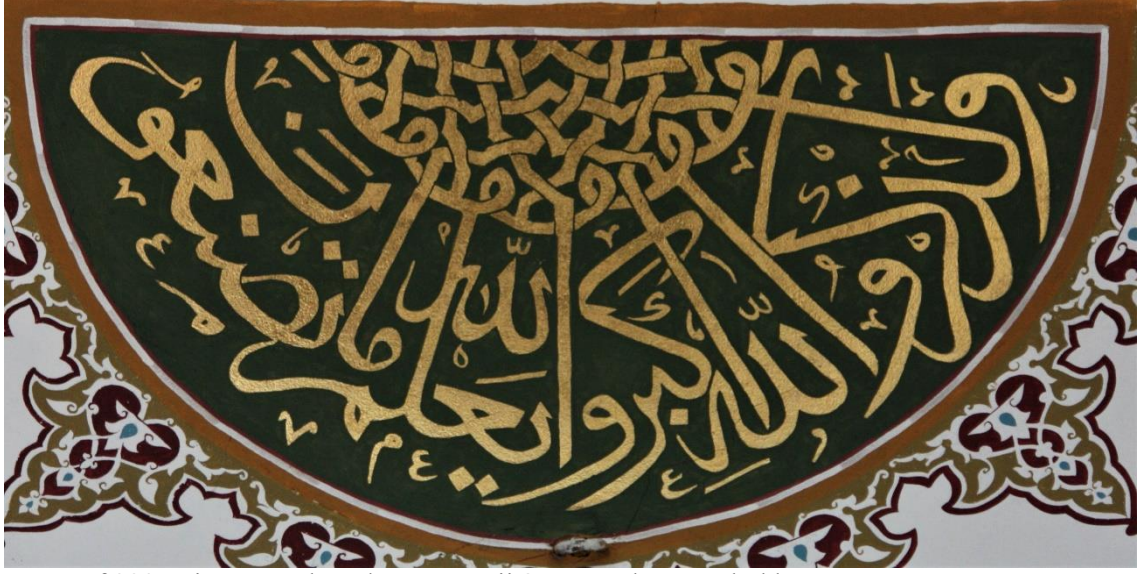 ولذكر الله أكبر والله يعلم ما تصنعون